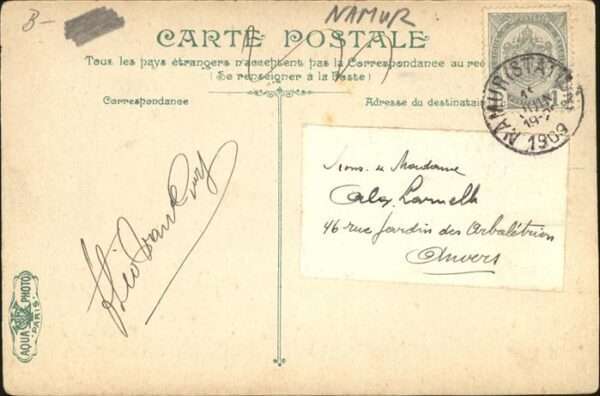 B-
NAMUR
CARTE POSTALE
Tous les pays étrangers n'acceptent pas la Correspondance au rec
(Se renseigner à la Poste)
Correspondance
Adresse du destinatair
NAMUR (STATI
11
19-
1909
Mons. et Madame
Alex.
46 rue Jardin des Arbalétriers
Anvers
AQUA PHOTO
PARIS